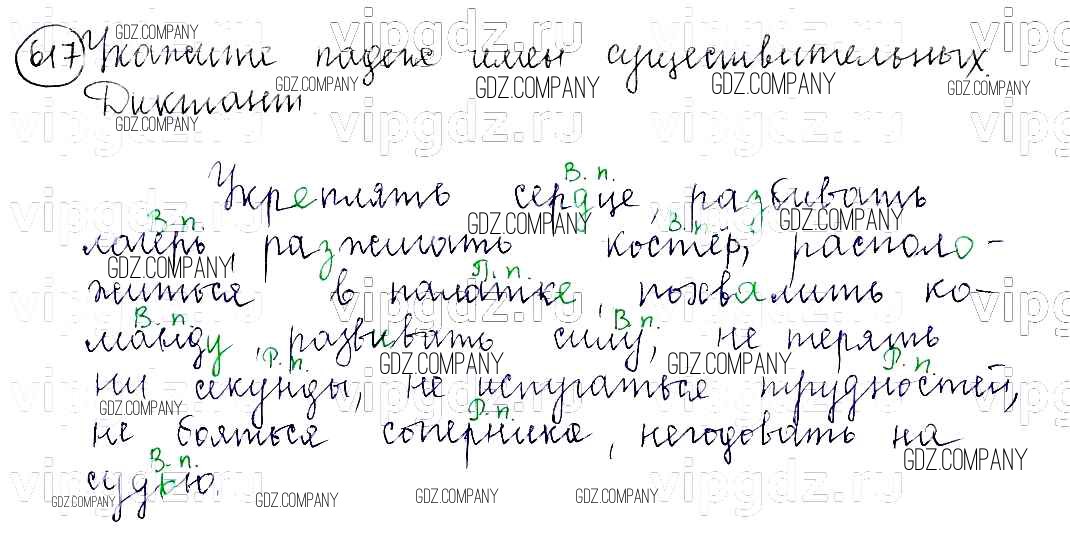 617 Укажите падеж имен существительных.
Диктант
Укреплять сердце, разбивать
лагерь, разжигать костёр, располо-
житься в палатке, похвалить ко-
манду, развивать силу, не терять
ни секунды, не испугаться трудностей,
не бояться соперника, негодовать на
судью.